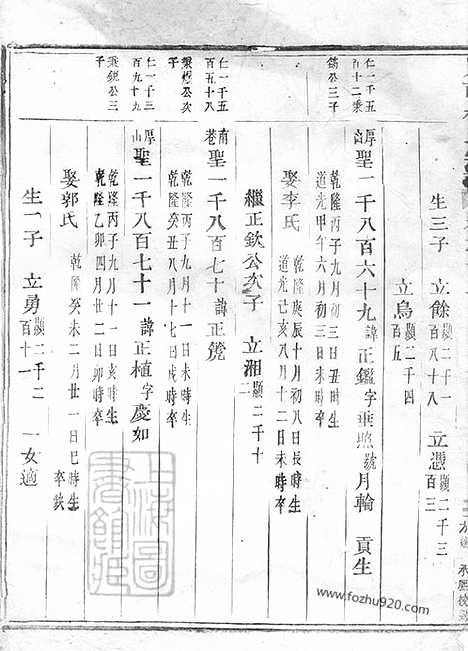 生三子 立餘顯二千一百八十八 立憑顯二千三百三
立烏顯二千四百五
仁一千五百十二秉錫公三子
厚山聖一千八百六十九諱正鑑字乗照號月輪 貢生
乾隆丙子九月初三日丑時生
道光甲午六月初三日未時卒
娶李氏 乾隆庚辰十月初八日長時生
道光己亥八月十二日未時卒
繼正欽公次子 立湘顯二千十二
仁一千五百五十八秉煜公次子
南巷聖一千八百七十諱正
乾隆丙子九月十一日未時生
乾隆癸丑八月十七日戌時卒
仁一千三百九十九秉銳公三子
厚山聖一千八百七十一諱正植字慶如
乾隆丙子九月十一日亥時生
乾隆乙卯四月廿二日卯時卒
娶郭氏 乾隆癸未二月廿一日巳時生
卒缺
生一子 立勇顯二千二百十一 一女適
上海圖書館藏
www.fozhu920.com